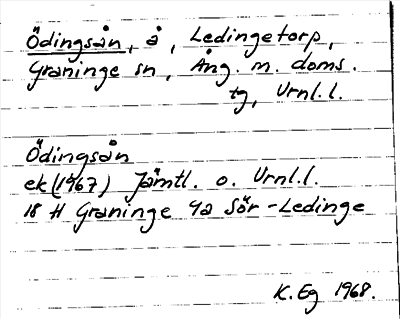 Ödingsån, å, Ledingetorp,
Graninge sn, Ång. m. doms.
tg, Vrnl.l.
Ödingsån
ek (1967) Jämtl. o. Vrnl.l.
18 H Graninge 9a Sör-Ledinge
K. Eg 1968.